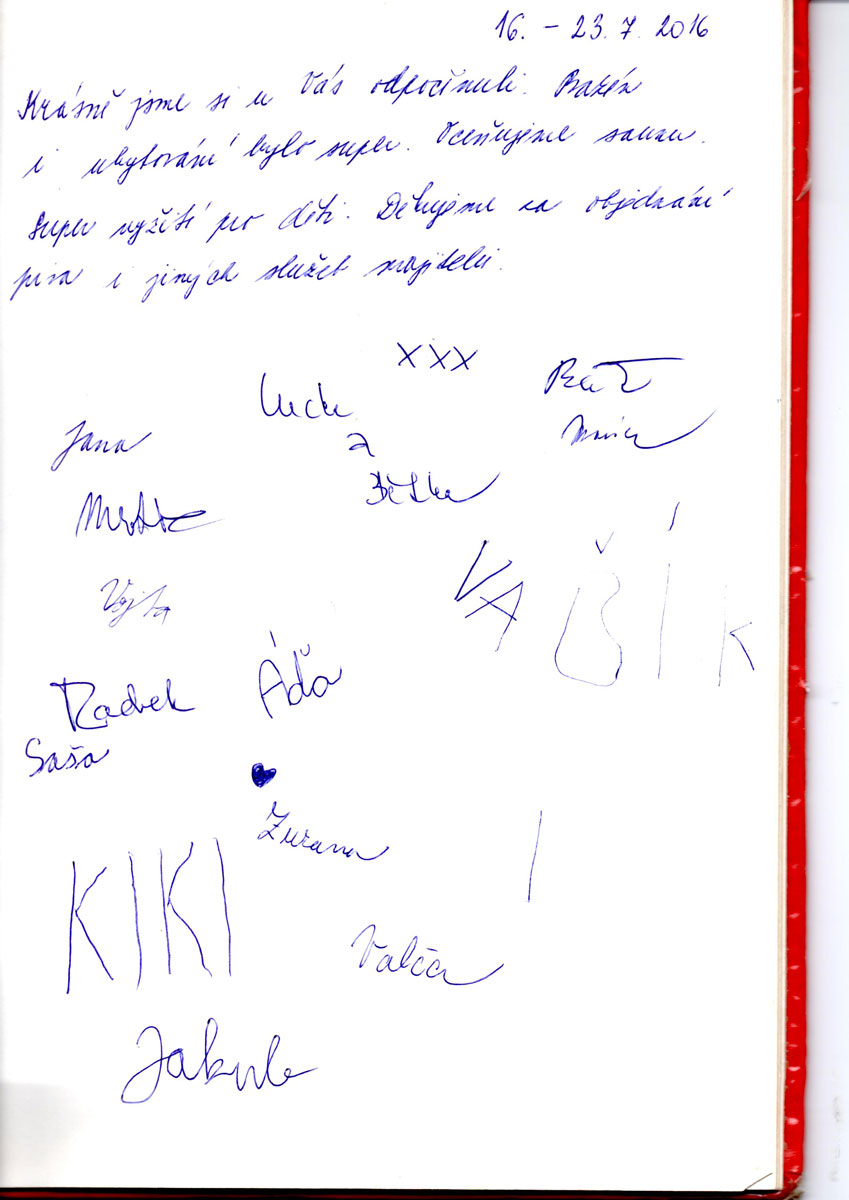 16. – 23. 7. 2016
Krásně jsme si u Vás odpočinuli. Bazén
i ubytování bylo super. Oceňujeme saunu.
Super vyžití pro děti. Děkujeme za objednání
piva i jiných služeb majiteli.
XXX
Jana
a
Vojta
VAŠÍK
Radek
Áďa
Saša
Zuzana
KIKI
Valča
Jakub